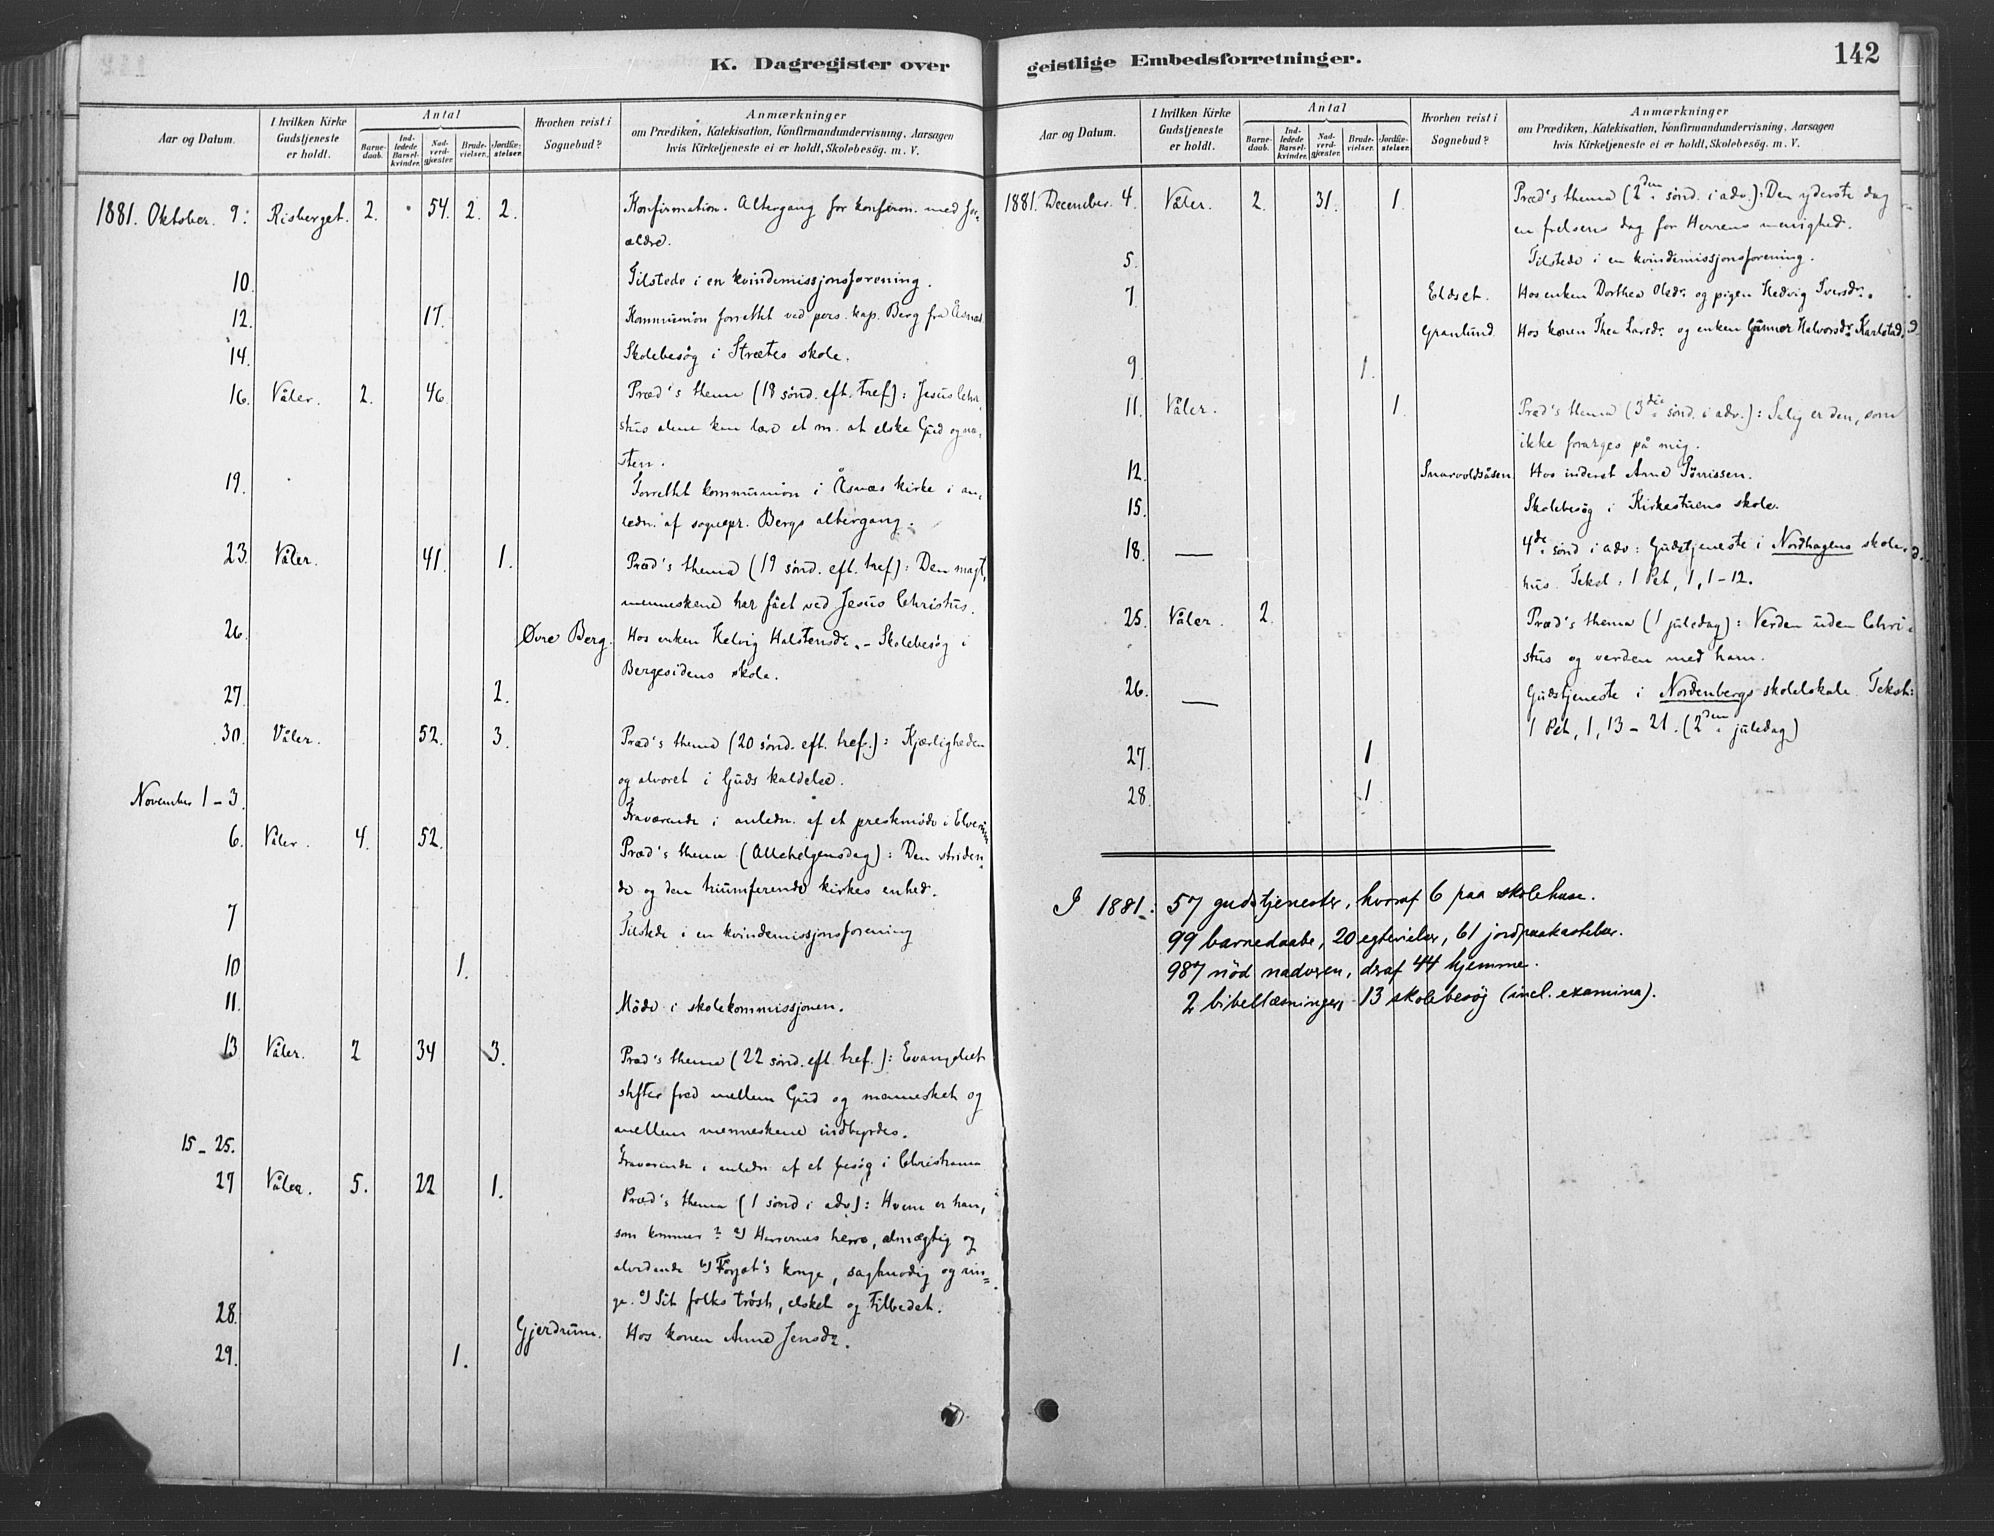 K. Dagregister over
Aar og Datum.
I hvilken Kirke Gudstjeneste er holdt.
Antal
Barnedaab.
Indledede Barselkvinder.
Nadverdgjæster.
Brudevielser.
Jordfæstelser.
Hvorhen reist i Sognebud?
Anmærkninger
om Prædiken, Katekisation, Konfirmandundervisning. Aarsagen
hvis Kirketjeneste ei er holdt, Skolebesög. m. V.
1881. Oktober. 9. Risberget. 2. 54. 2. 2. Konfirmation. Altergang for konfirm. med for-
ældre.
10. Tilstede i en kvindemissjonsforening.
12. 17. Kommunion forrettet ved pers. kap. Berg fra Åsnæs
14. Skolebesøg i Strætes skole.
16. Våler. 2. 46. Præd's thema (18 sønd. eft. tref.): Jesus Chri-
stus alene kan lære et m. at elske Gud og næ-
sten.
19. Forrettet kommunion i Åsnæs kirke i an-
ledn. af sognepr. Bergs altergang.
23. Våler. 41. 1. Præd's thema (19 sønd. eft. tref): Den magt,
menneskene har fået ved Jesus Christus.
26. Øvre Berg. Hos enken Helvig Halstensdr. - Skolebesøg i
Bergesidens skole.
27. 2.
30. Våler. 52. 3. Præd's thema (20 sønd. eft. tref.): Kjærligheden
og alvoret i Guds kaldelse.
November 1-3. Fraværende i anledn. af et prestemøde i Elverum
6. Våler. 4. 52. Præd's thema (Allehelgensdag): Den striden-
de og den triumferende kirkes enhed.
7 Tilstede i en kvindemissjonsforening
10 1.
11. Møde i skolekommissjonen.
13 Våler. 2 34 3. Præd's thema (22 sønd. eft. tref.): Evangeliet
stifter fred mellem Gud og mennesket og
mellem menneskene indbyrdes.
15-25. Fraværende i anledn. af et besøg i Christiania
27 Våler. 5. 22 1. Præd's thema (1 sønd i adv): Hvem er han,
som kommer? a) Herrernes herre, almægtig og
alvidende b) konge, sagtmodig og rin-
ge. c) Sit folks trøst, elsket og tilbedet.
28. Gjerdrum. Hos konen Anne Jensdr.
29. 1.
geistlige Embedsforretninger.
142
Aar og Datum.
I hvilken Kirke Gudstjeneste er holdt.
Antal
Barnedaab.
Indledede Barselkvinder.
Nadverdgjæster.
Brudevielser.
Jordfæstelser.
Hvorhen reist i Sognebud?
Anmærkninger
om Prædiken, Katekisation, Konfirmandundervisning. Aarsagen
hvis Kirketjeneste ei er holdt, Skolebesög. m. V.
1881. December. 4. Våler. 2. 31. 1. Præd's thema (2den sønd. i adv.): Den yderste dag
en frelsens dag for Herrens menighed.
5. Tilstede i en kvindemissjonsforening.
7 Eldset. Hos enken Dorthea Olsdr. og pigen Hedvig Iversdr.
Granlund. Hos konen Thea Larsdr. og enken Gunnor Halvorsdr. Karlstad.
9. 1.
11. Våler. 1. Præd's thema (3die sønd. i adv.): Salig er den, som
ikke forarges på mig.
12. Snarvoldsåsen. Hos inderst Arne Tørrissen.
15. Skolebesøg i Kirkestuens skole.
18. — 4de sønd i adv: Gudstjeneste i Nordhagens skole-
hus. Tekst: 1 Pet, 1, 1-12.
25. Våler. 2. Præd's thema (1 juledag): Verden uden Chri-
stus og verden med ham.
26. — Gudstjeneste i Nordenbergs skolelokale. Tekst:
1 Pet, 1, 13-21. (2den juledag)
27. 1
28. 1
I 1881: 57 gudstjenester, hvoraf 6 paa skolehuse.
99 barnedaabe, 20 egtevielser, 61 jordpaakastelser.
987 nød nadveren, deraf 44 hjemme.
2 bibellæsninger, 13 skolebesøg (incl. examina).